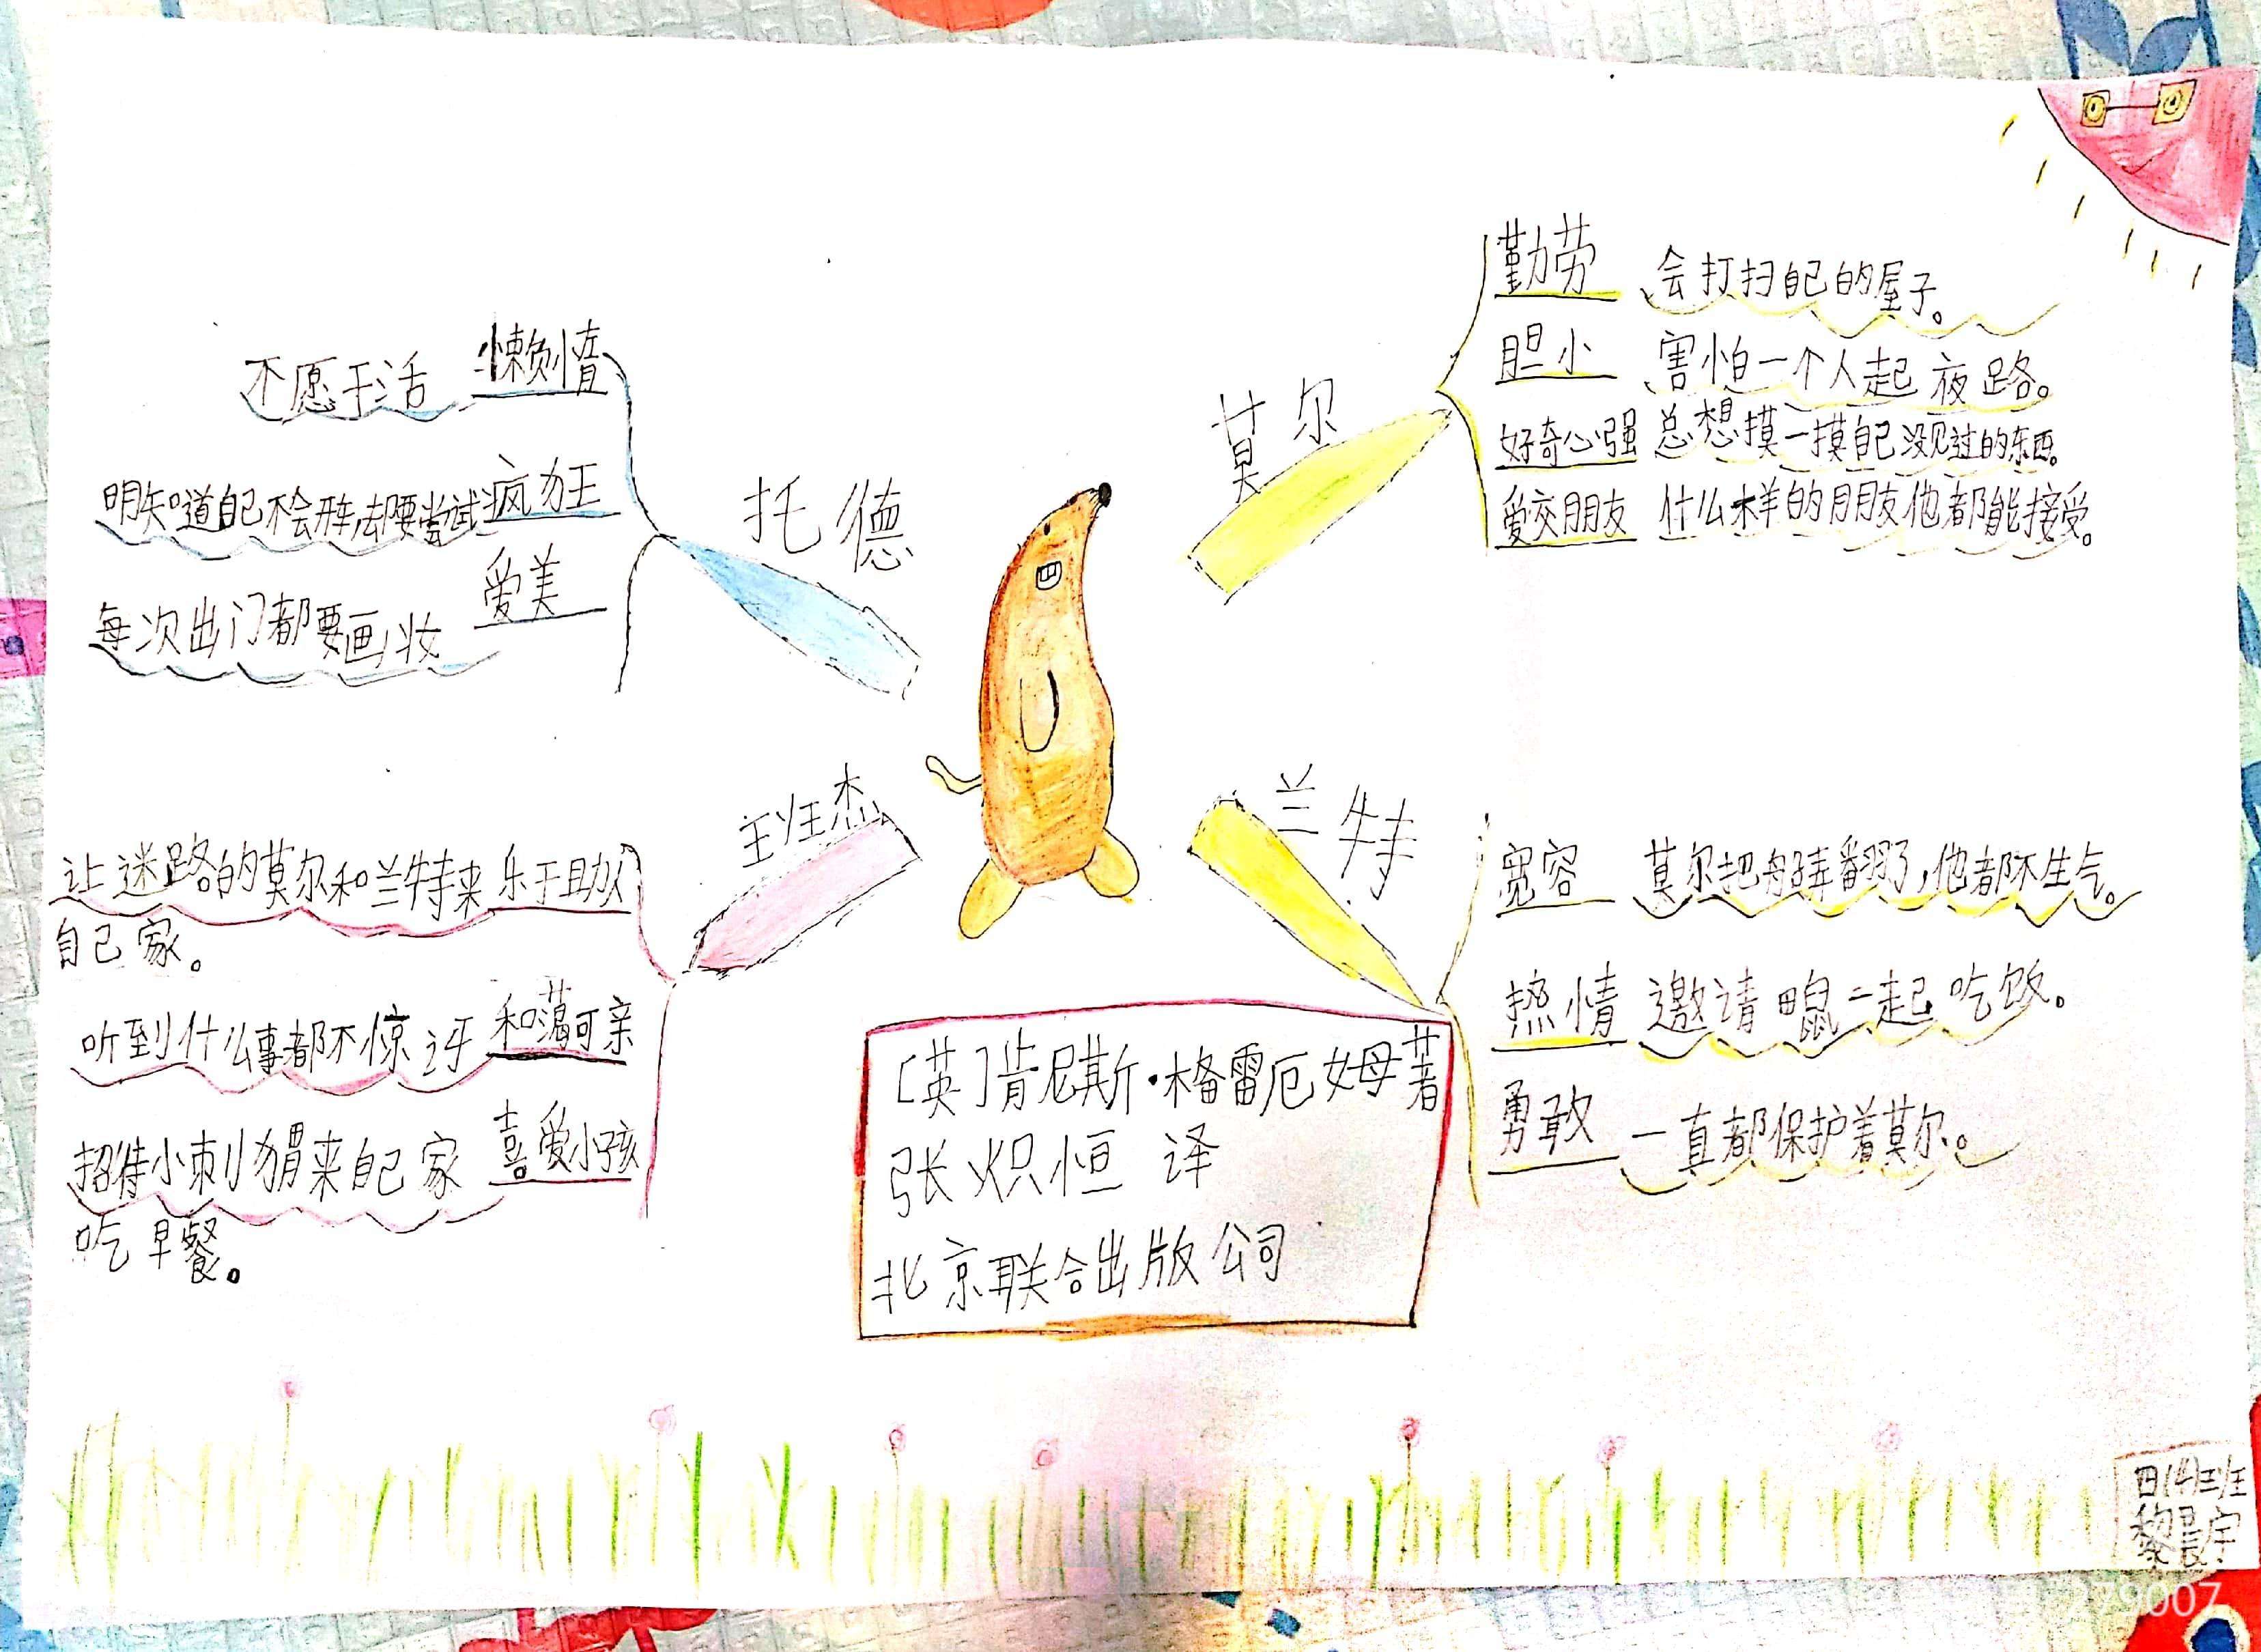 托德
懒惰 不愿干活
疯狂 明知道自己不会开车,却要尝试
爱美 每次出门都要画妆
莫尔
勤劳 会打扫自己的屋子。
胆小 害怕一个人起夜路。
好奇心强 总想摸一摸自己没见过的东西。
爱交朋友 什么样的朋友他都能接受。
乐于助人 让迷路的莫尔和兰特来
自己家。
和蔼可亲 听到什么事都不惊讶
喜爱小孩 招待小刺猬来自己家
吃早餐。
兰特
宽容 莫尔把船弄翻了,他都不生气。
热情 邀请鼹鼠一起吃饭。
勇敢 一直都保护着莫尔。
[英]肯尼斯·格雷厄姆著
张炽恒 译
北京联合出版公司
四(4)班
黎晨宇
279007